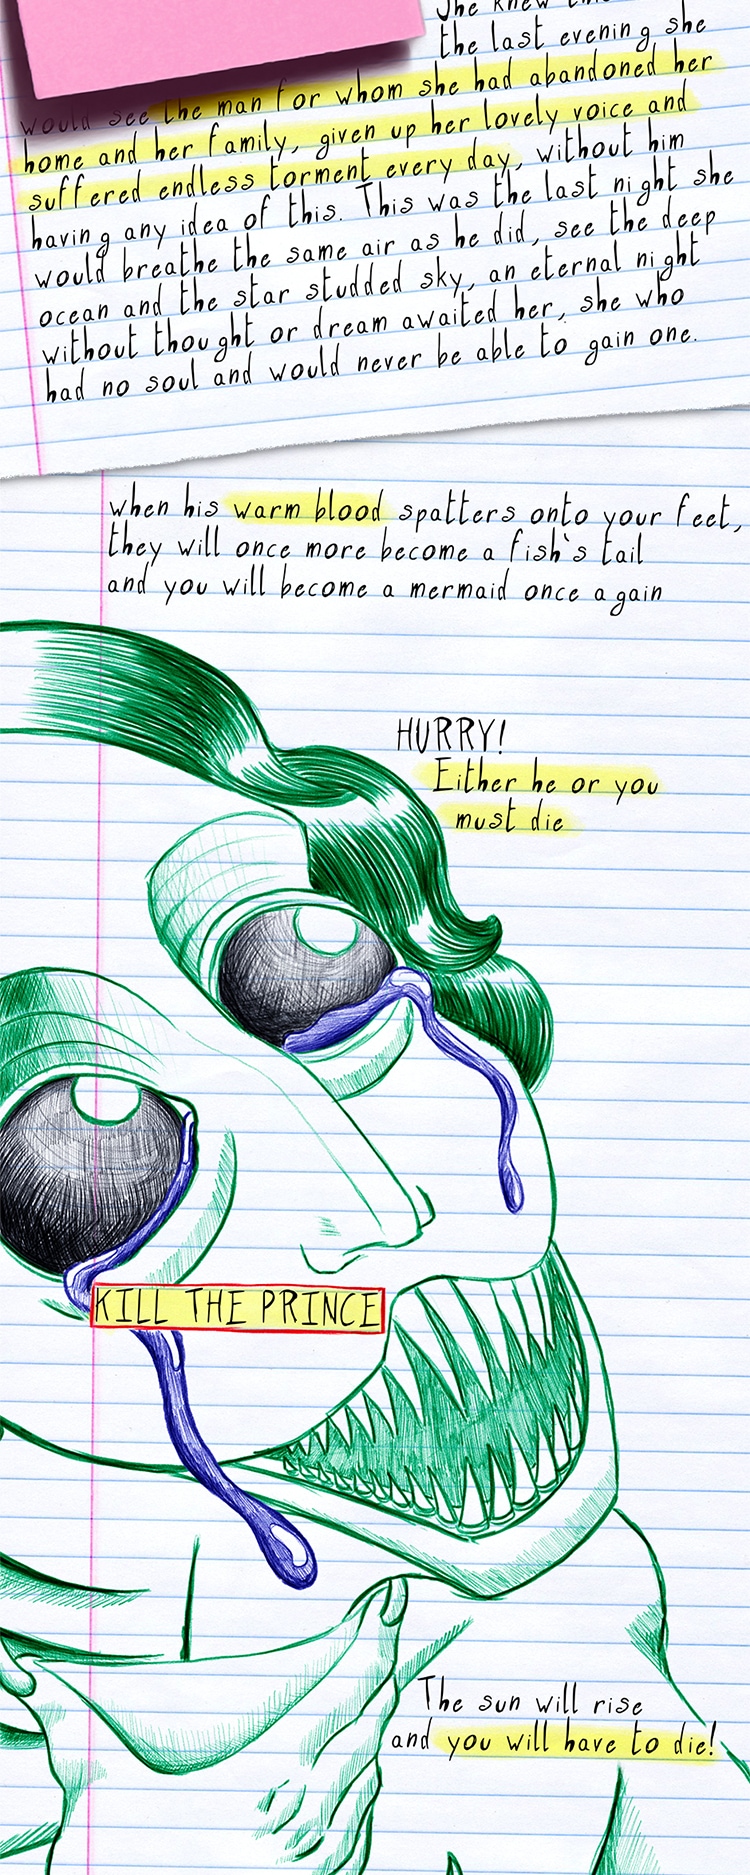 She knew
the last evening she
would see the man for whom she had abandoned her
home and her family, given up her lovely voice and
suffered endless torment every day, without him
having any idea of this. This was the last night she
would breathe the same air as he did, see the deep
ocean and the star studded sky, an eternal night
without thought or dream awaited her, she who
had no soul and would never be able to gain one.
when his warm blood spatters onto your feet,
they will once more become a fish`s tail
and you will become a mermaid once again
HURRY!
Either he or you
must die
KILL THE PRINCE
The sun will rise
and you will have to die!